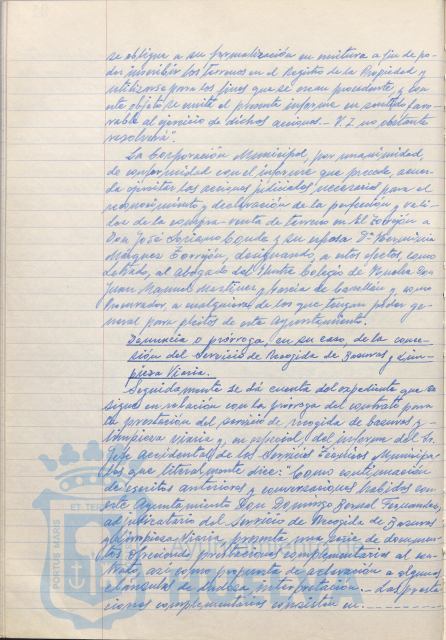 se obligue a su formalización en escritura a fin de po-
der inscribir los terrenos en el Registro de la Propiedad y
utilizarse para los fines que se crean procedente, y con
este objeto se emite el presente informe en sentido favo-
rable al ejercicio de dichas acciones. - V.I. no obstante
resolverá".
La Corporación Municipal, por unanimidad,
de conformidad con el informe que precede, acuer-
da ejercitar las acciones judiciales necesarias para el
reconocimiento y declaración de la perfección y vali-
dez de la compra-venta de terreno en El Torrejón a
Don José Soriano Conde y su esposa Dª Herminia
Márquez Torrejón, designando, a estos efectos, como
Letrado, al abogado del Iltre Colegio de Huelva Don
Juan Manuel Martínez y García de Castellón y como
Procurador, a cualquiera de los que tengan poder ge-
neral para pleitos de este Ayuntamiento.
Denuncia o prórroga, en su caso, de la conce-
sión del Servicio de Recogida de Basuras y Lim-
pieza Viaria.
Seguidamente se dá cuenta del expediente que se
sigue en relación con la prórroga del contrato para
la prestación del servicio de recogida de basuras y
limpieza viaria y, en especial, del informe del Sr.
Jefe Accidental de los Servicios Técnicos Municipa-
les que literalmente dice: "Como continuación
de escritos anteriores y conversaciones habidas con
este Ayuntamiento Don Domingo Bernal Fernández,
adjudicatario del Servicio de Recogida de Basuras
y Limpieza Viaria, presenta una serie de documen-
tos ofreciendo prestaciones complementarias al con-
trato, así como propuesta de aclaración a algunas
cláusulas de dudosa interpretación. - Las presta-
ciones complementarias consisten en:
PORTUS MARIS ET TERRAE